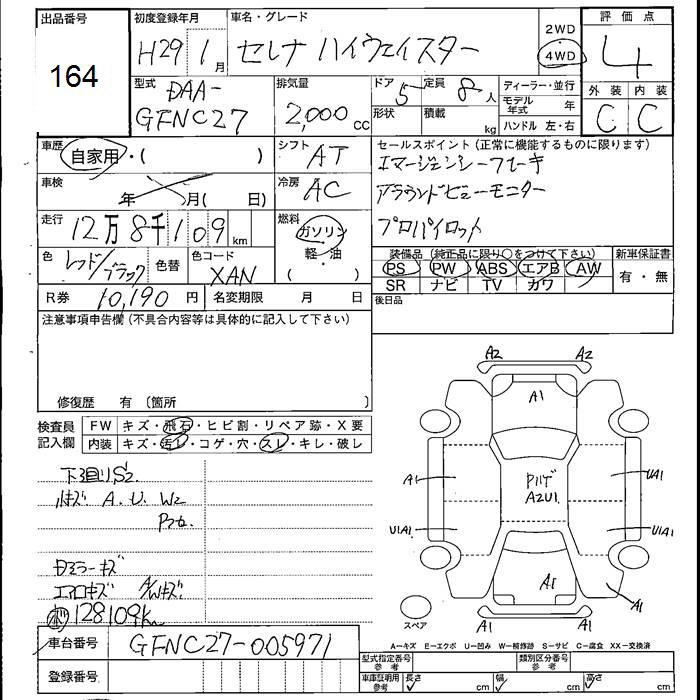 出品番号 初度登録年月 車名・グレード 2WD 評価点
164 H29 1月 セレナ ハイウェイスター 4WD 4
型式 排気量 ドア 定員 ディーラー・並行 外装 内装
DAA- 5 8人 モデル年式 年
GFNC27 2,000cc 形状 積載 kg ハンドル 左・右 C C
車歴 自家用・( ) シフト AT セールスポイント (正常に機能するものに限ります)
エマージェンシーブレーキ
車検 年 月( 日) 冷房 AC アラウンドビューモニター
走行 12万8千109km 燃料 ガソリン・軽油・( ) プロパイロット
色 レッド/ブラック 色替 色コード XAN 装備品 (純正品に限り○をつけて下さい) 新車保証書
PS PW ABS エアB AW 有・無
R券 10,190円 名変期限 月 日 SR ナビ TV カワ
注意事項申告欄 (不具合内容等は具体的に記入して下さい) 後日品
修復歴 有 (箇所 )
検査員記入欄 FW キズ・飛石・ヒビ割・リペア跡・X要
内装 キズ・汚レ・コゲ・穴・スレ・キレ・破し
A2 A2
A1
下廻りS2
A1 A2U1 UA1
A.U.W2
U1A1 U1A1
ミラーキズ
エアロキズ A/Wキズ A1
128109km A1
スペア A1 A1
車台番号 GFNC27-005971
A-キズ E-エクボ U-凹み W-補修跡 S-サビ C-腐食 XX-交換済
登録番号 型式指定番号 参考 類別区分番号 参考
車庫証明用参考 長さ cm 幅 cm 高さ cm